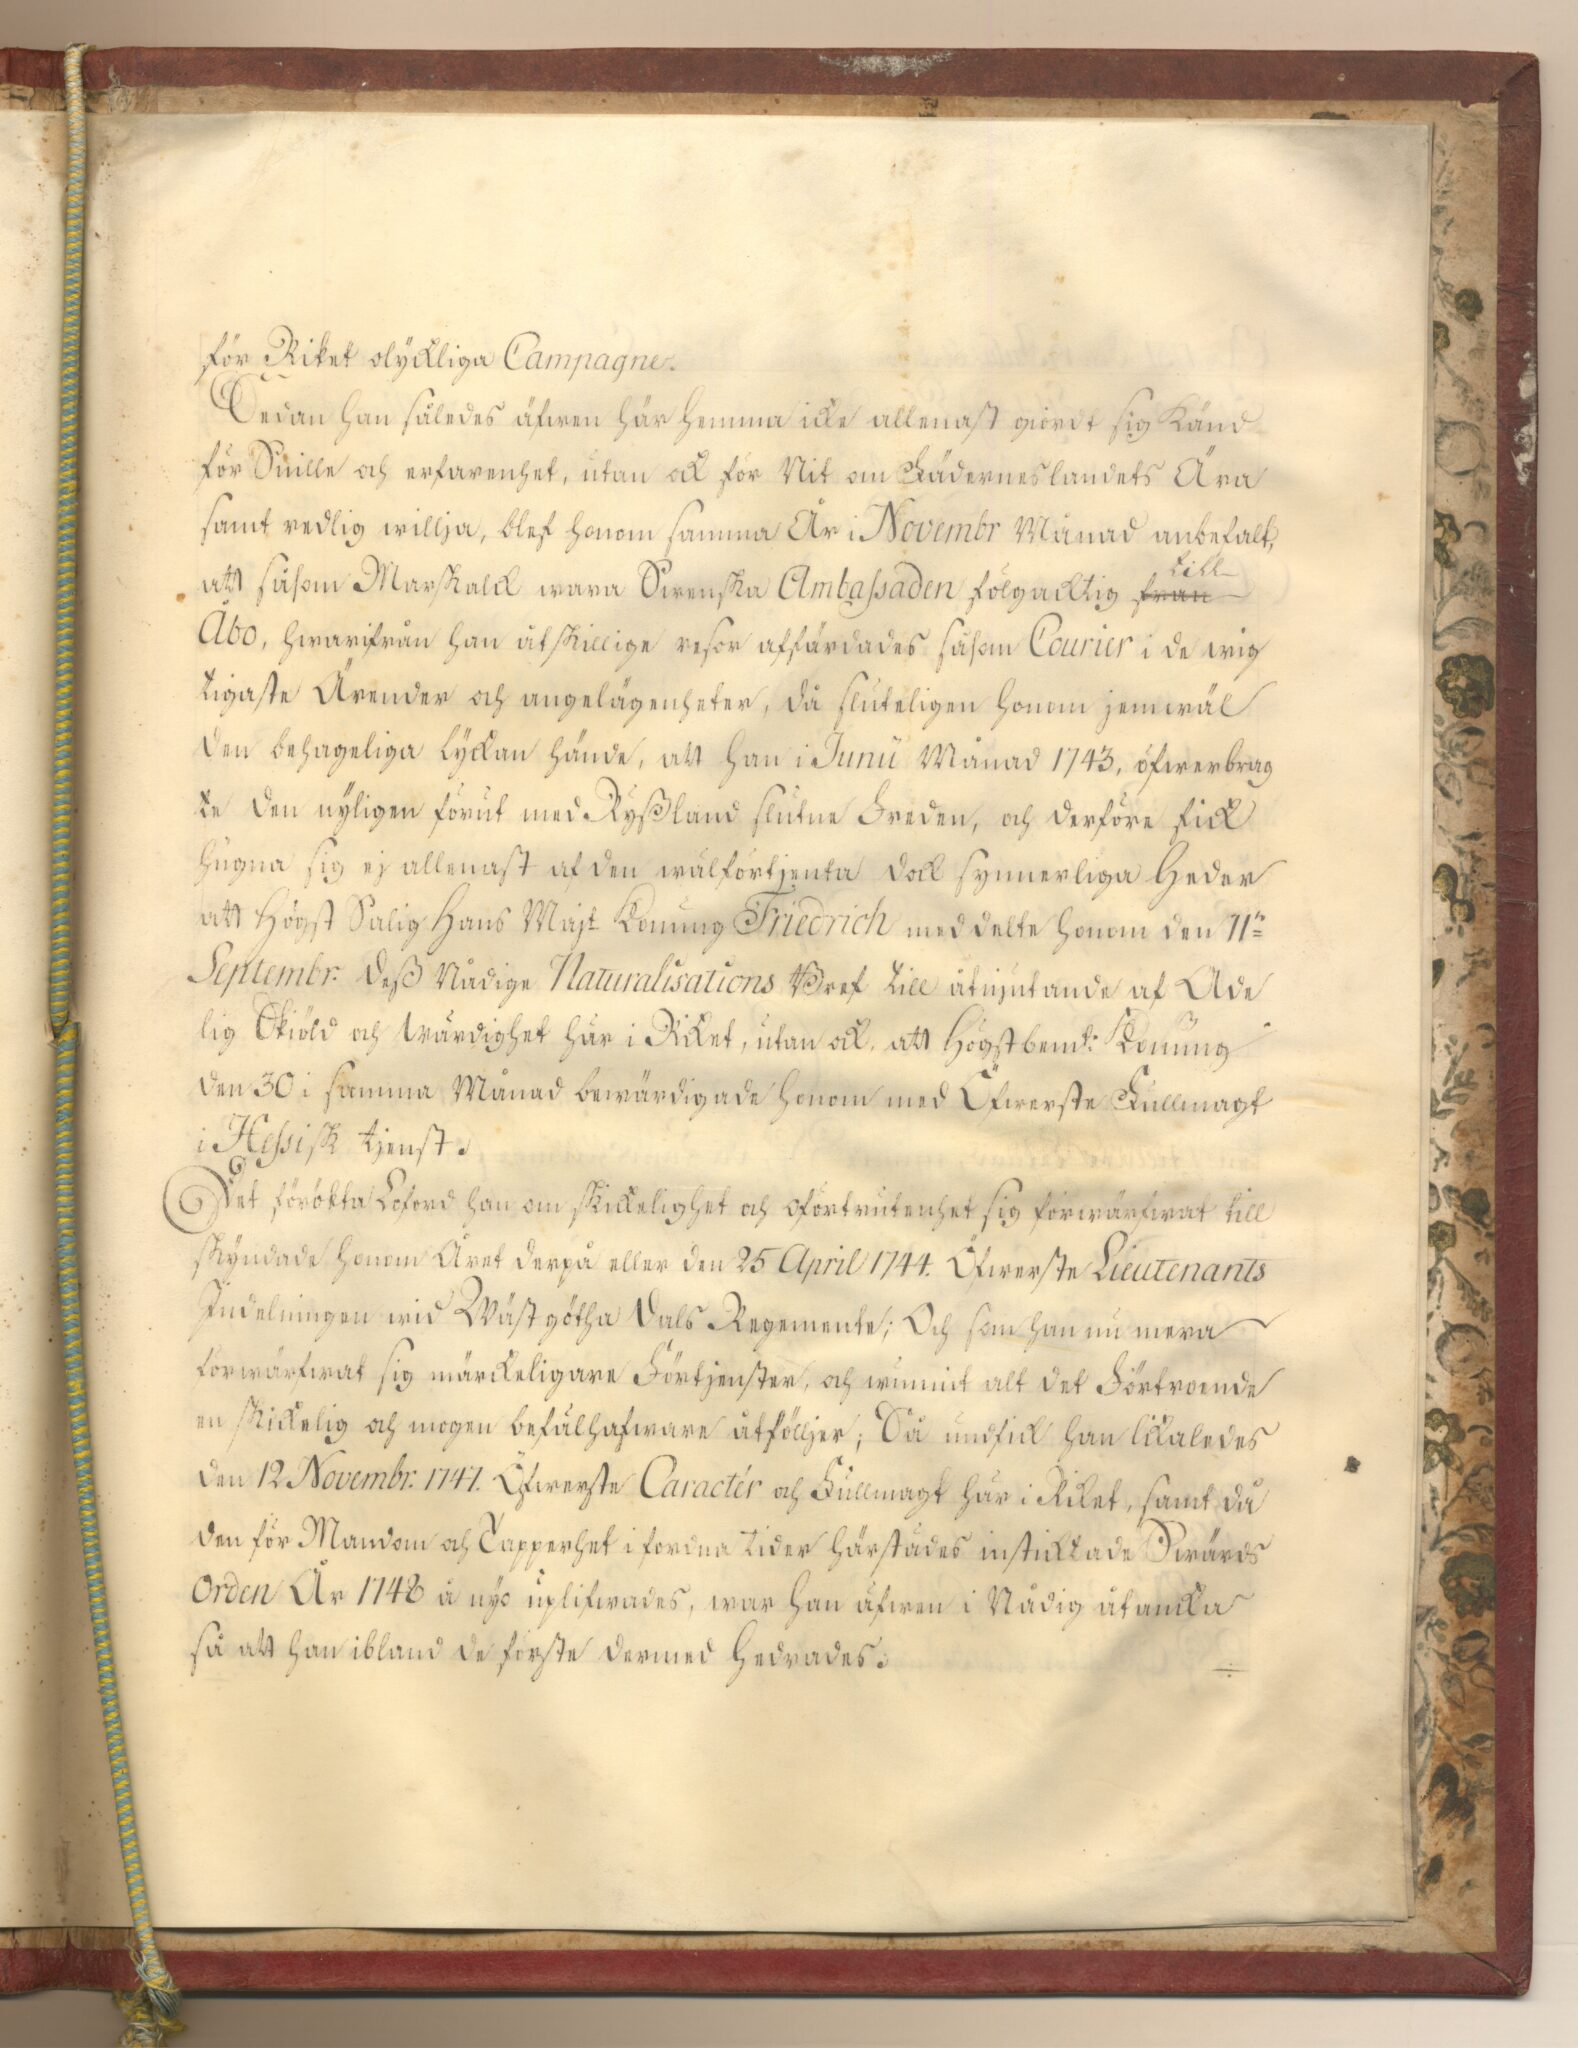 för Riket olyckliga Campagne.
Sedan han således äfwen här hemma icke allenast giordt sig Känd
för Snille och erfarenhet, utan ock för Nit om Fäderneslandets Ära
samt redlig willja, blef honom samma År i Novembr Månad anbefalt,
att såsom Marskalck wara Swenska Ambassaden följacktig från till
Åbo, hwarifrån han åtskillige resor affärdades såsom Courier i de wig
tigaste Ärender och angelägenheter, då sluteligen honom jemwäl
den behageliga lyckan hände, att han i Junii Månad 1743, öfwerbrag
te den nyligen förut med Ryßland slutne Freden, och derföre fick
hugna sig ej allenast af den wälförtjenta dock synnerliga Heder
att Högst Salig Hans Majt Konung Friedrich meddelte honom den 11te
Septembr. deß Nådige Naturalisations Bref till åtnjutande af Ade
lig Skiöld och Wärdighet här i Riket, utan ock, att Högstbemte Konung
den 30 i samma Månad bewärdigade honom med Öfwerste Fullmagt
i Hessisk tjenst.
Det förökta Loford han om skickelighet och oförtrutenhet sig förwärfwat till
skyndade honom Året derpå eller den 25 April 1744. Öfwerste Lieutenants
Indelningen wid Wästgötha Dals Regemente; Och som han nu mera
förwärfwat sig märckeligare Förtjenster, och wunnit alt det Förtroende
en skickelig och mogen befälhafware åtföljer; Så undfick han likaledes
den 12 Novembr. 1747. Öfwerste Caractér och Fullmagt här i Riket, samt då
den för Mandom och Tapperhet i fordna tider härstädes insticktade Swärds
Orden År 1748 å nyo uplifwades, war han äfwen i Nådig åtancka
så att han ibland de förste dermed hedrades.